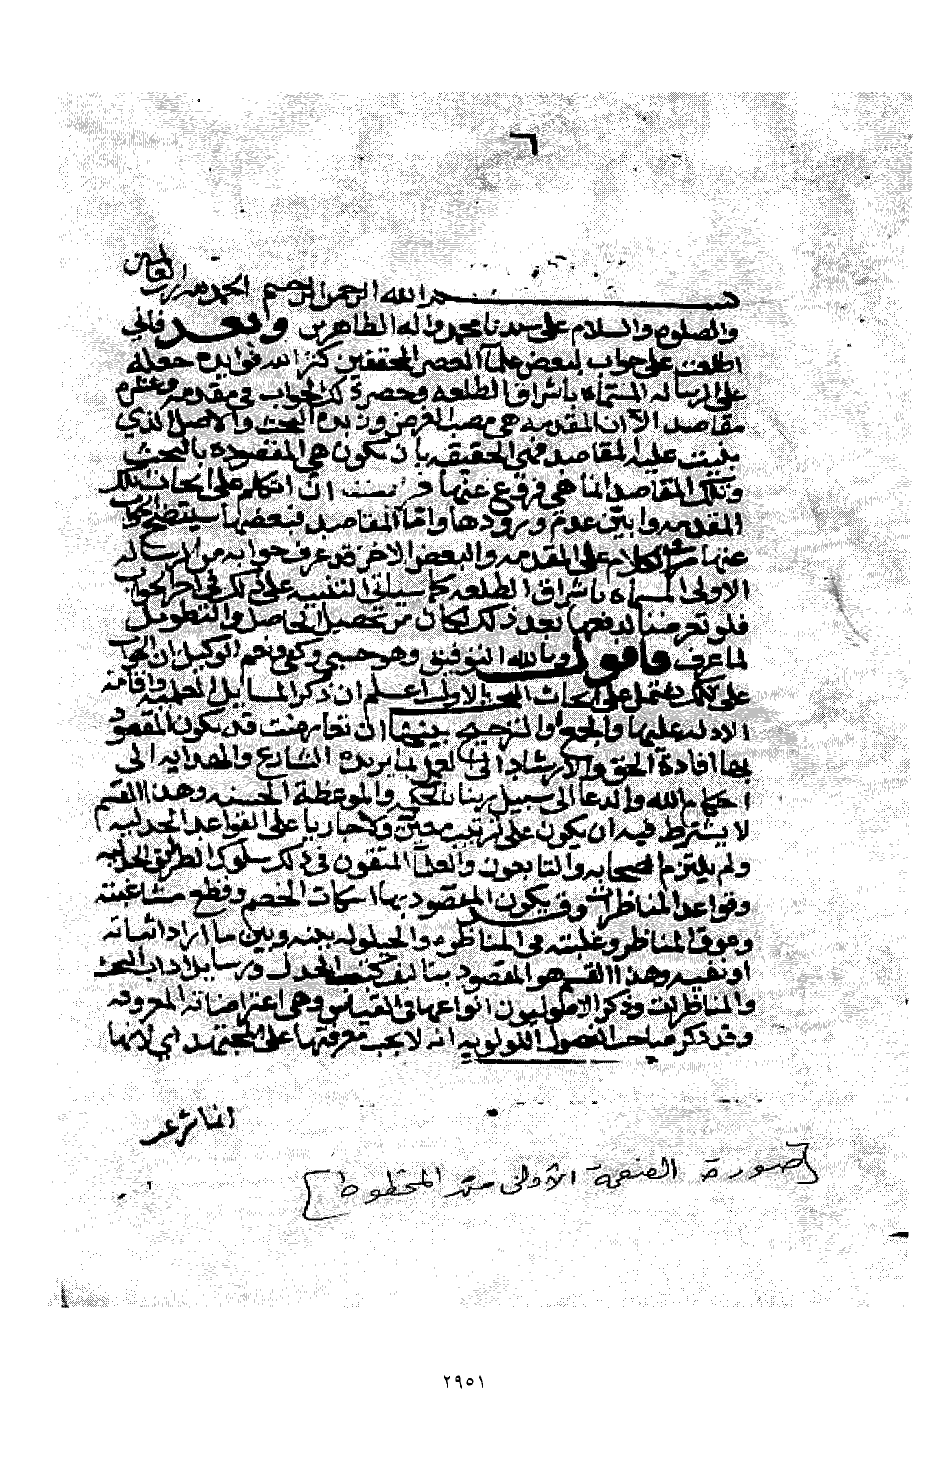 ٦
بسم الله الرحمن الرحيم الحمد لله رب العالمين
والصلوة والسلام على سيدنا محمد واله الطاهرين وبعد فاني
اطلعت على جواب لبعض علماء العصر المحققين كثر الله فوايدهم جعله
على الرسالة المسماه باشراق الطلعه وحصر ذلك الجواب في مقدمه و
مقاصد الا ان المقدمه هي مصب الغرض وزبدة البحث والاصل الذي
بنيت عليه المقاصد فهي الحقيقه بان تكون هي المقصوده بالبحث
وتلك المقاصد انما هي فروع عنها ان اتكلم على ابحاث تلك
المقدمه وابين عدم ورودها واما المقاصد فبعضها سيتضح
عنها من الكلام على المقدمه والبعض الاخر قد عرف جوابه من الرساله
الاولى المسماه باشراق الطلعه كما سياتي التنبيه على ذلك في اخر الجواب
فلو تعرضنا لدفعها بعد ذلك لكان من تحصيل الحاصل والتطويل
لما عرف فاقول وبالله التوفيق وهو حسبي وكفى ونعم الوكيل ان
على ذلك يشتمل على ابحاث البحث الاول اعلم ان ذكر المسايل العلميه واقامة
الادله عليها والجمع والترجيح بينها ان تعارضت قد يكون المقصود
بها افادة الحق والارشاد الى العمل بما يريده الشارع والهدايه الى
احكام الله والدعا الى سبيل ربنا بالحكمه والموعظة الحسنه وهذا القسم
لا يشترط فيه ان يكون على ترتيب معين ولا جاريا على القواعد الجدليه
ولم يلتزم الصحابه والتابعون والعلما المتقون في ذلك سلوك الطريق الجدليه
وقواعد المناظرات وقد يكون المقصود بها اسكات الخصم وقطع مشاغبته
وعوق المناظر وغلبته في المناظره والحيلوله بينه وبين ما اراد اثباته
او نفيه وهذا القسم هو المقصود بتاليف كتب الجدل ورسايل اداب البحث
والمناظرات وذكر الاصوليون انواعها في القياس وهي اعتراضاته المعروفه
وقد ذكر صاحب الفصول اللولويه انه لا يجب معرفتها على المجتهد اي لانها
انما شرعت
[صورة الصفحة الأولى من المخطوط]
٢٩٥١